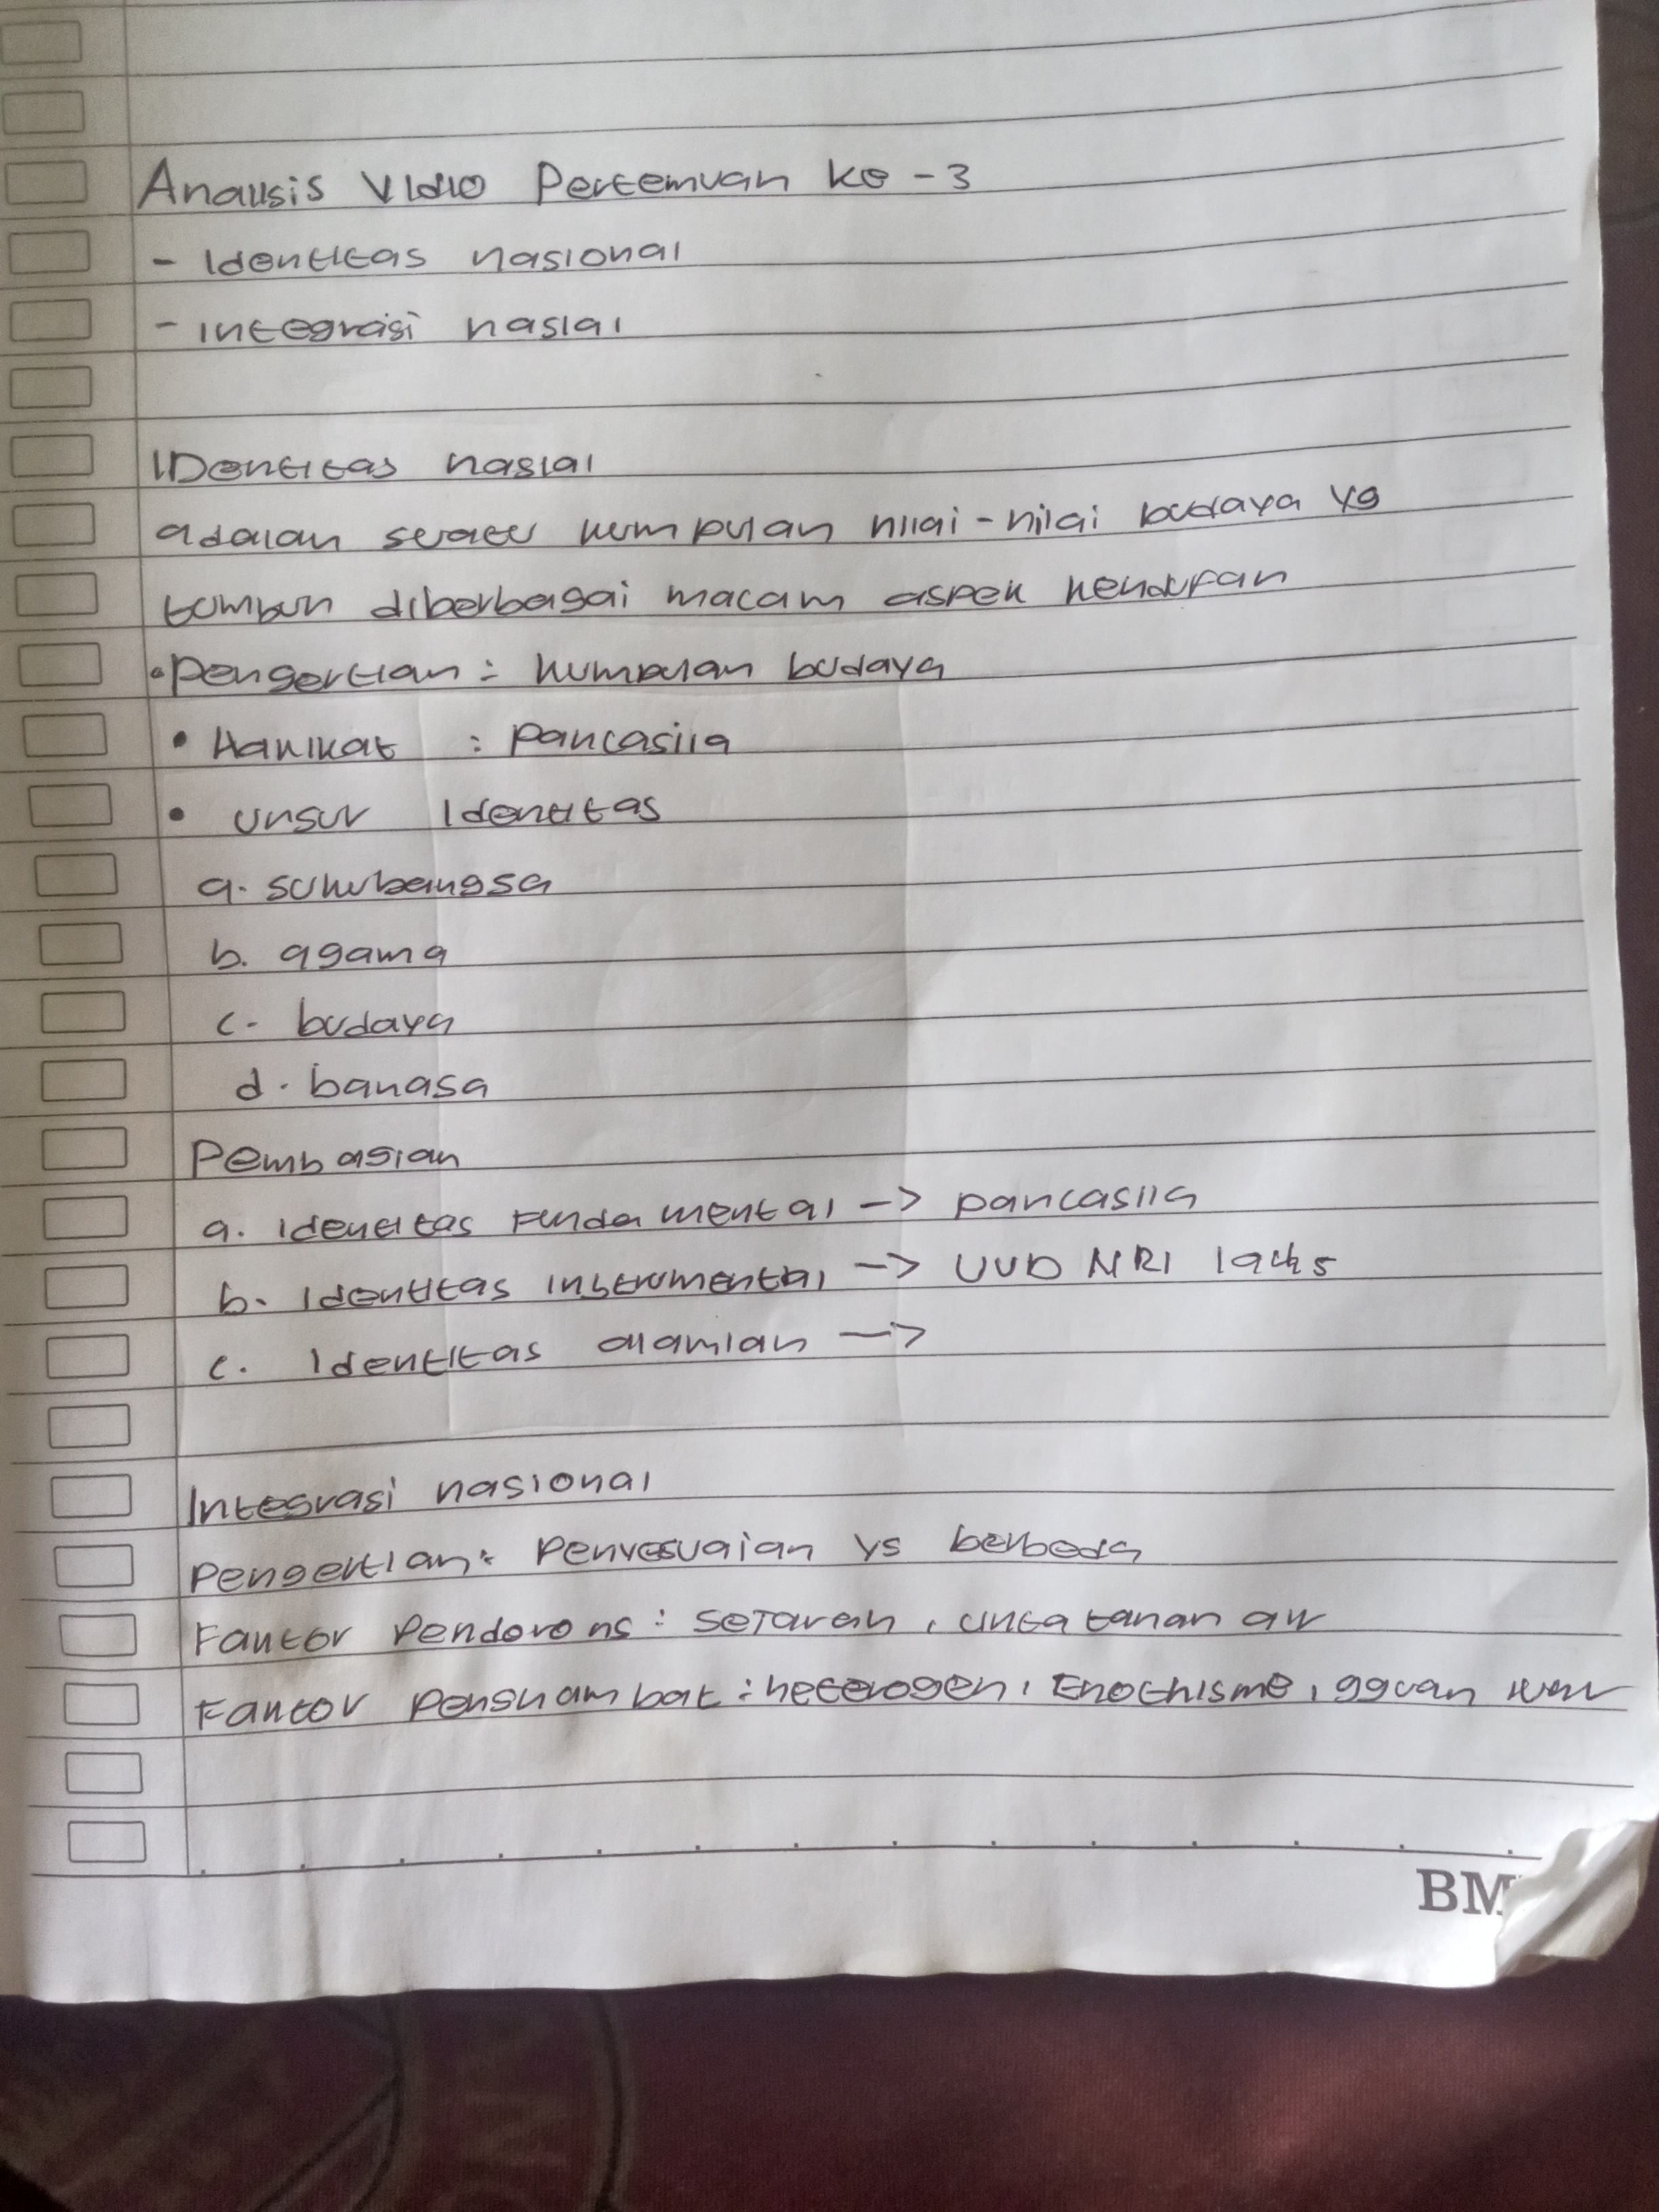 Analisis Vidio Pertemuan ke - 3
- Identitas nasional
- integrasi nasial
IDentitas nasial
adalah suatu kumpulan nilai - nilai budaya yg
tumbuh diberbagai macam aspek
• Pengertian : kumpulan budaya
• Hakikat : pancasila
• unsur Identitas
a. sukubangsa
b. agama
c. budaya
d. bahasa
Pembagian
a. identitas Fundamental -> pancasila
b. Identitas instrumental -> UUD NRI 1945
c. Identitas alamiah ->
Integrasi nasional
Pengertian : Penyesuaian yg berbeda
Faktor Pendorong : Sejarah , cinta tanah air
Faktor Penghambat : heterogen ,
BM